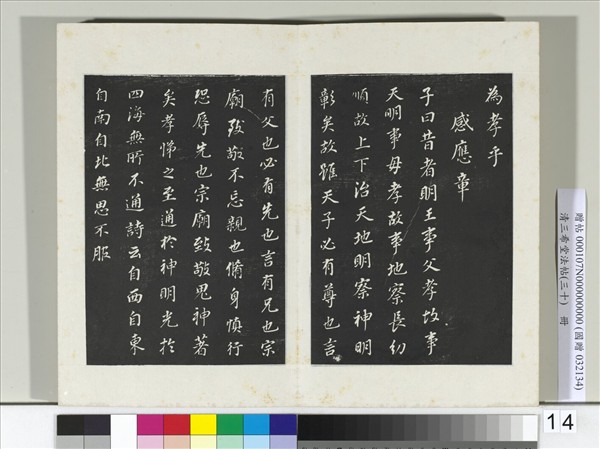 為孝乎
感應章
子曰昔者明王事父孝故事
天明事母孝故事地察長幼
順故上下治天地明察神明
彰矣故雖天子必有尊也言
有父也必有先也言有兄也宗
廟致敬不忘親也脩身慎行
恐辱先也宗廟致敬鬼神著
矣孝悌之至通於神明光於
四海無所不通詩云自西自東
自南自北無思不服
贈帖 000107N000000000 (國贈 032134)
清三希堂法帖(三十) 冊
14